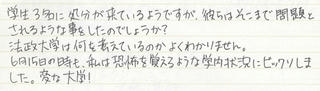 学生3名に処分が来ているようですが、彼らはそこまで問題と
されるような事をしたのでしょうか?
法政大学は何を考えているのかよくわかりません。
6月15日の時も、私は恐怖を覚えるような学内状況にビックリしま
した。変な大学!